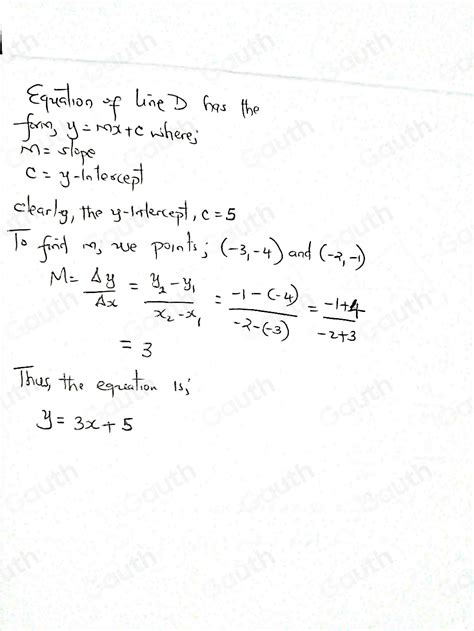 Equation of Line D has the
form, y = mx + c where;
m = slope
c = y-Intercept
clearly, the y-Intercept, c = 5
To find m, use points; (-3,-4) and (-2,-1)
M = Δy/Δx = y₂-y₁/x₂-x₁ = -1-(-4)/-2-(-3) = -1+4/-2+3
= 3
Thus, the equation is;
y = 3x + 5